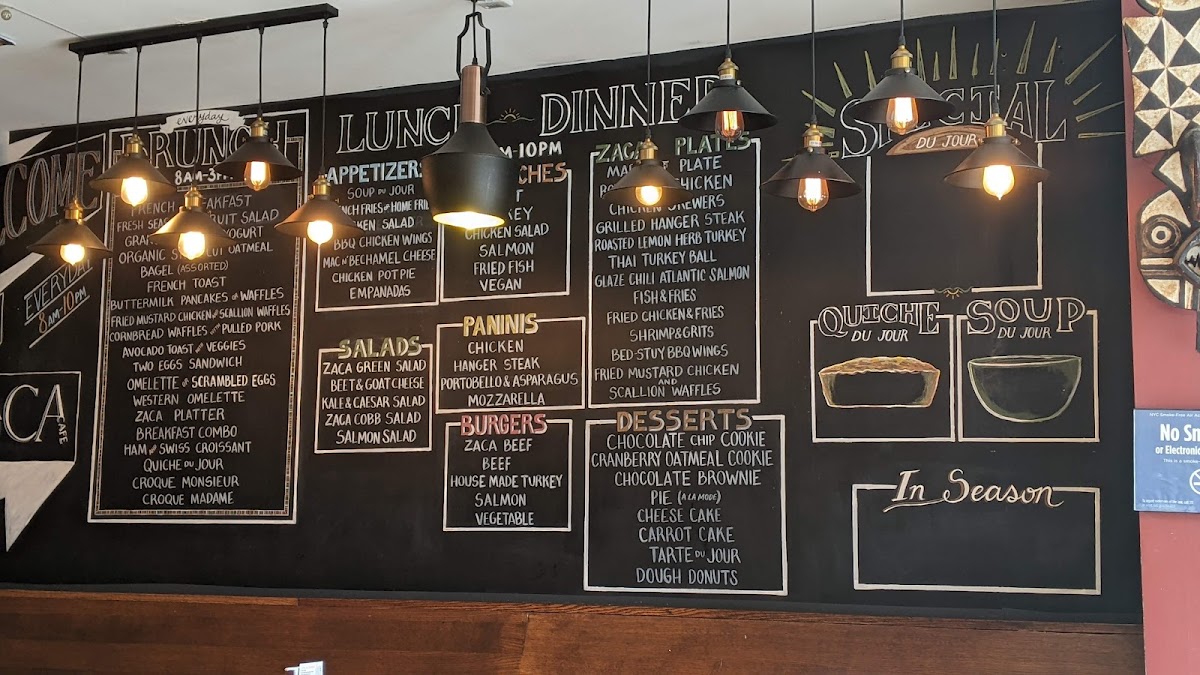 EVERYDAY
8AM-10PM
CAFE
everyday
BRUNCH
8AM-3
FRENCH BREAKFAST
FRESH FRUIT SALAD
YOGURT
ORGANIC OATMEAL
BAGEL (ASSORTED)
FRENCH TOAST
BUTTERMILK PANCAKES OR WAFFLES
FRIED MUSTARD CHICKEN AND SCALLION WAFFLES
CORNBREAD WAFFLES WITH PULLED PORK
AVOCADO TOAST WITH VEGGIES
TWO EGGS SANDWICH
OMELETTE OR SCRAMBLED EGGS
WESTERN OMELETTE
ZACA PLATTER
BREAKFAST COMBO
HAM AND SWISS CROISSANT
QUICHE DU JOUR
CROQUE MONSIEUR
CROQUE MADAME
LUNCH DINNER
M-10PM
APPETIZERS
SOUP DU JOUR
FRENCH FRIES OR HOME FRI
CHICKEN SALAD
BBQ CHICKEN WINGS
MAC N' BECHAMEL CHEESE
CHICKEN POT PIE
EMPANADAS
SALADS
ZACA GREEN SALAD
BEET & GOAT CHEESE
KALE & CAESAR SALAD
ZACA COBB SALAD
SALMON SALAD
CHES
KEY
CHICKEN SALAD
SALMON
FRIED FISH
VEGAN
PANINIS
CHICKEN
HANGER STEAK
PORTOBELLO & ASPARAGUS
MOZZARELLA
BURGERS
ZACA BEEF
BEEF
HOUSE MADE TURKEY
SALMON
VEGETABLE
ZACA PLATES
PLATE
CHICKEN
CHICKEN SKEWERS
GRILLED HANGER STEAK
ROASTED LEMON HERB TURKEY
THAI TURKEY BALL
GLAZE CHILI ATLANTIC SALMON
FISH & FRIES
FRIED CHICKEN & FRIES
SHRIMP & GRITS
BED-STUY BBQ WINGS
FRIED MUSTARD CHICKEN
AND
SCALLION WAFFLES
DESSERTS
CHOCOLATE CHIP COOKIE
CRANBERRY OATMEAL COOKIE
CHOCOLATE BROWNIE
PIE (A LA MODE)
CHEESE CAKE
CARROT CAKE
TARTE DU JOUR
DOUGH DONUTS
SPECIAL
DU JOUR
QUICHE
DU JOUR
SOUP
DU JOUR
In Season
No Sm
or Electroni